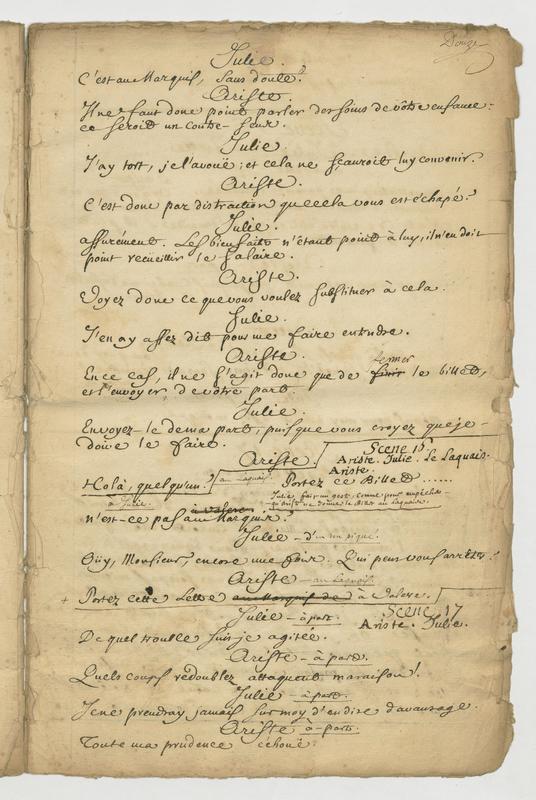 Douze
Julie.
C'est au Marquis, sans doute?
Ariste.
Il ne faut donc point parler des soins de vôtre enfance:
ce seroit un contre-sens.
Julie
J'ay tort, je l'avouë; et cela ne sçauroit luy convenir.
Ariste.
C'est donc par distraction que cela vous est échapé?
Julie.
assurément. Les bienfaits n'étant point à luy, il n'en doit
point recueillir le salaire.
Ariste.
Voyez donc ce que vous voulez substituer à cela.
Julie.
J'en ay assez dit pour me faire entendre.
Ariste.
fermer
En ce cas, il ne s'agit donc que de finir le billet,
et l'envoyer de vôtre part.
Julie.
Envoyez-le de ma part, puisque vous croyez que je
doive le faire.
Ariste.
Scene 16
Ariste. Julie. Le Laquais.
Ariste.
Hola, quelqu'un? au Laquais.
Portez ce Billet ......
Julie fait un geste, comme pour empêcher
qu'Ariste ne donne le Billet au Laquais.
à Julie.
à Valere
n'est-ce pas au Marquis?
Julie - d'un ton piqué.
Oüy, Monsieur, encore une fois. Qui peut vous arrêter?
Ariste - au Laquais.
+ Portez cette Lettre au Marquis de à Valere.
Scene 17
Julie - à part.
Ariste. Julie.
De quel trouble suis-je agitée.
Ariste - à part.
Quels coups redoublez attaquent ma raison!
Julie - à part.
Je ne prendray jamais sur moy d'en dire d'avantage.
Ariste à part.
Toute ma prudence échouë.